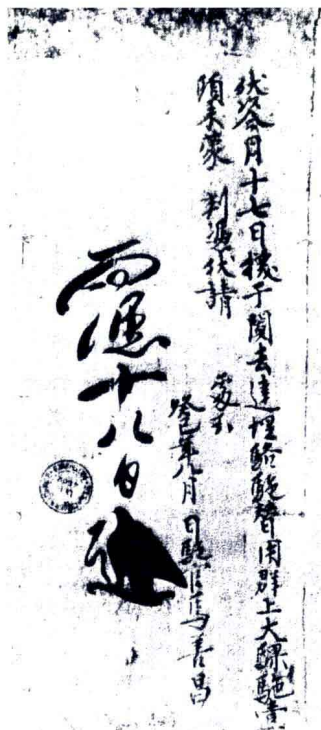 伏以今月十七日換于闐去達坦駱駝替用群上大騍駝壹
頭未蒙　判憑伏請
處分
癸巳年八月　日駝官馬善昌
為憑十八日